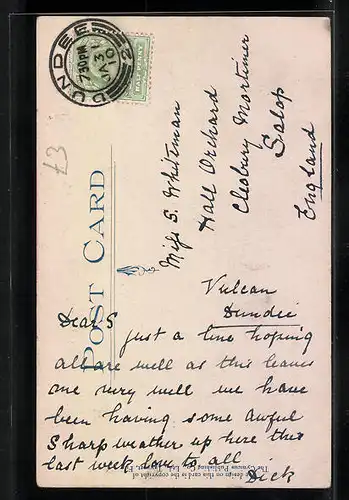 DUNDEE
7.30 PM
JA 31
10
HALF PENNY
£3
POST CARD
Miss S. Whiteman
Hall Orchard
Cleobury Mortimer
Salop
England
Vulcan
Dundee
Dear S
just a line hoping
all are well as this leaves
one very well we have
been having some awful
Sharp weather up here this
last week love to all
Dick
design on this card is the copyright of
The Cynicus Publishing Co., Ltd.,